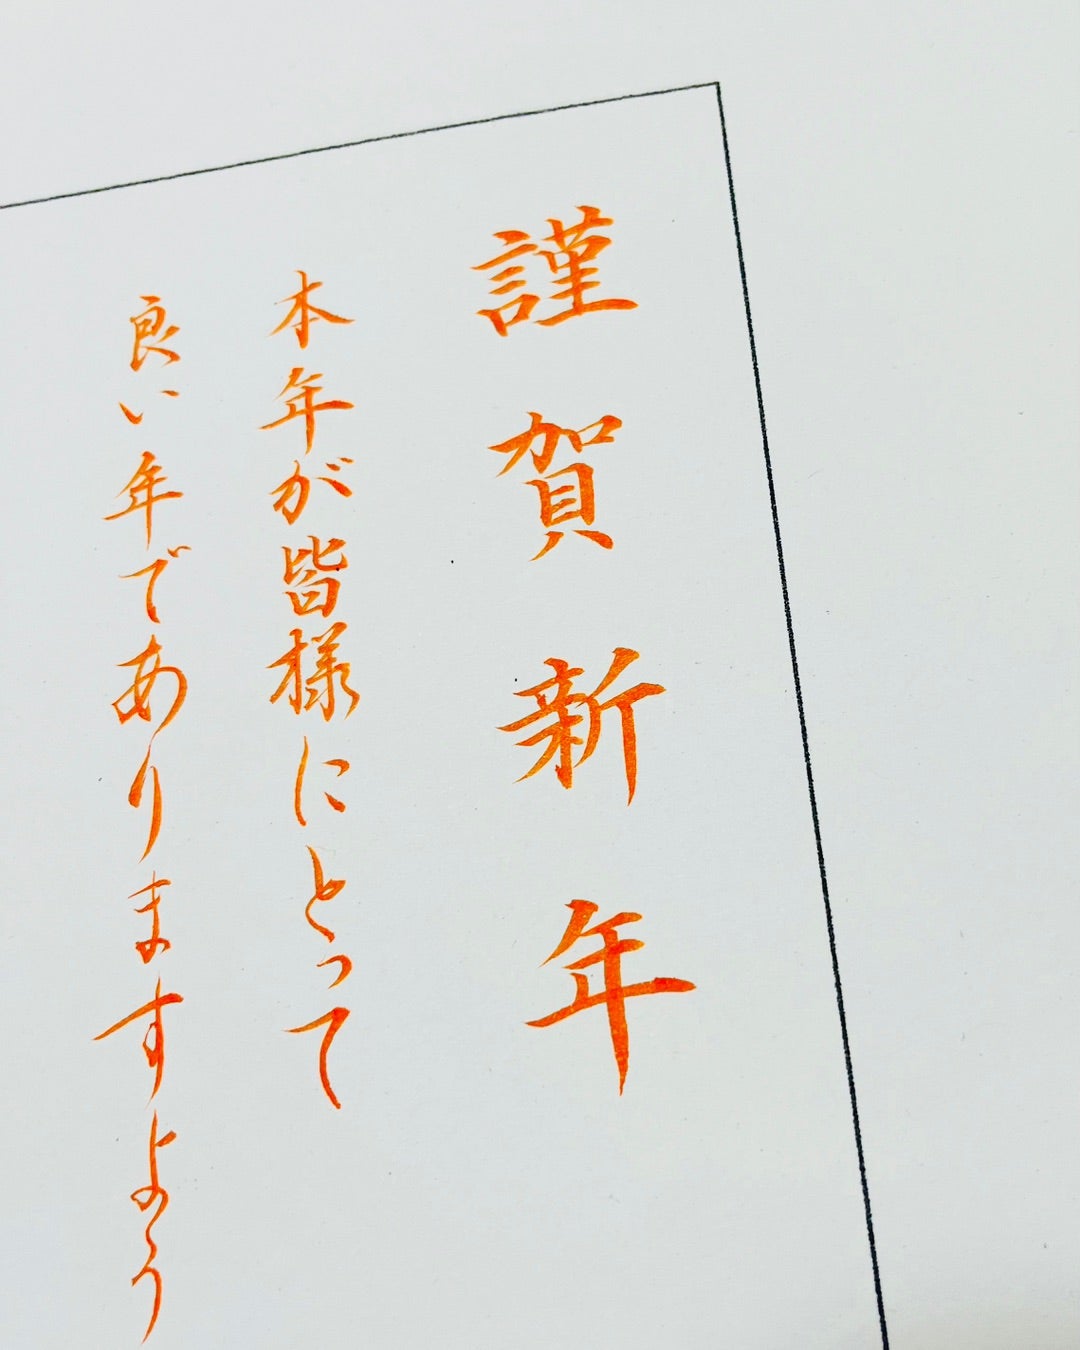 謹賀新年
本年が皆様にとって
良い年でありますよう